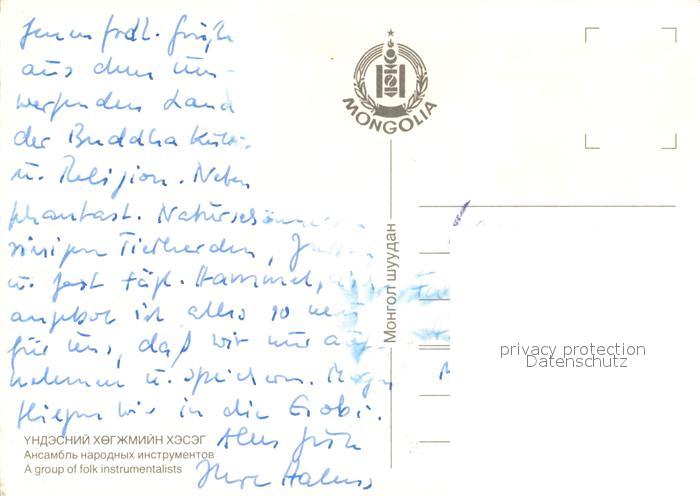 aus dem um-
werfenden Land
der Buddha Kultur
u. Religion. Neben
phantast. Naturschönheiten
riesigen Tierherden,
u. fast tägl. Hammel,
angebot ist alles so neu
für uns, daß wir nur auf-
nehmen u. speichern. Morgen
fliegen wir in die Gobi.
Alles
MONGOLIA
Монгол шуудан
privacy protection
Datenschutz
ҮНДЭСНИЙ ХӨГЖМИЙН ХЭСЭГ
Ансамбль народных инструментов
A group of folk instrumentalists